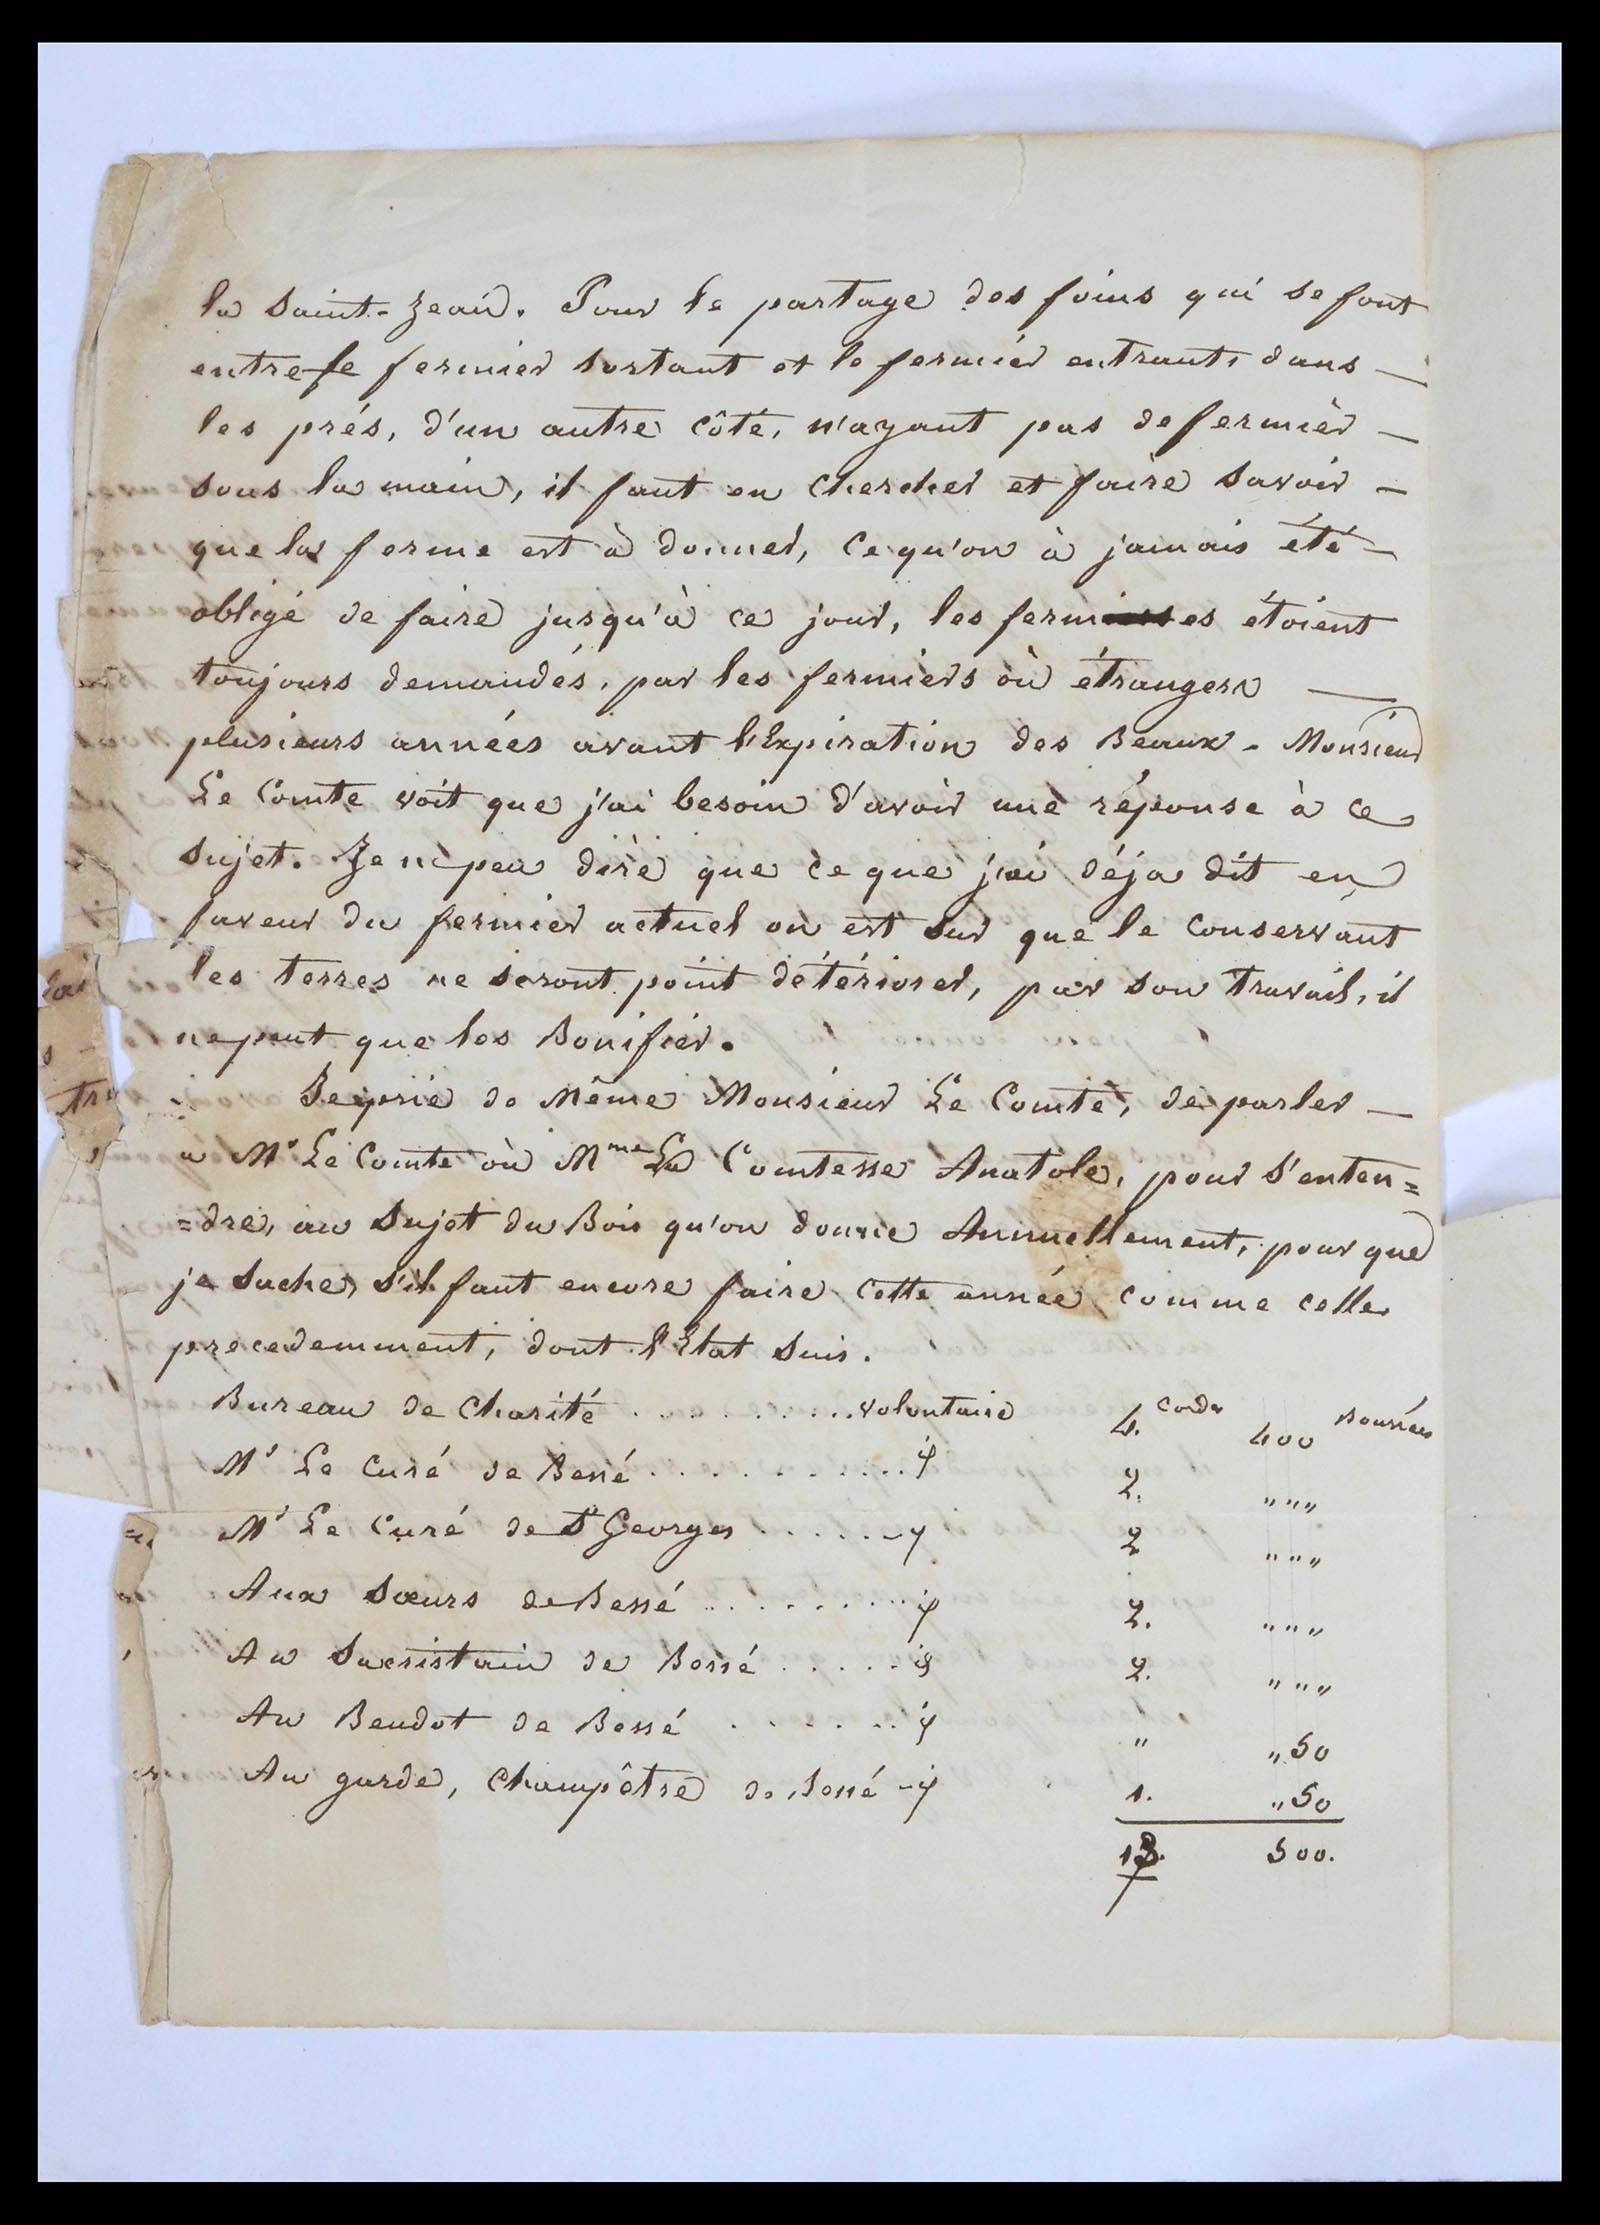 la Saint-Jean. Pour le partage des foins qui se font
entre le fermier sortant et le fermier entrant, dans
les prés, d'un autre côté, n'ayant pas de fermier
sous la main, il faut en chercher et faire savoir
que la ferme est à donner, ce qu'on à jamais été
obligé de faire jusqu'à ce jour, les fermes étoient
toujours demandés, par les fermiers où étrangers
plusieurs années avant l'Expiration des Beaux - Monsieur
Le Comte voit que j'ai besoin d'avoir une réponse à ce
sujet. Je ne peu dire que ce que j'ai déja dit en
faveur du fermier actuel on est sur que le conservant
les terres ne seront point détériorer, par son travail, il
ne peut que les Bonifier.
Je prie de Même Monsieur Le Comte, de parler
a Mr Le Comte où Mme La Comtesse Anatole, pour s'enten=
=dre, au sujet du Bois qu'on donne Annuellement, pour que
je sache, s'il faut encore faire cette année comme celle
precedemment, dont l'Etat suis.
Bureau de Charité .......... volontaire 4. Cordes 400 Bourrées
Mr Le Curé de Bessé ............ 2. " " "
Mr Le Curé de St Georges ...... 2 " " "
Aux Sœurs de Bessé ......... 2. " " "
Au Sacristain de Bessé ..... 2. " " "
Au Bedot de Bessé ...... " " 50
Au garde, Champêtre de Bessé - 1. " 50
13. 500.